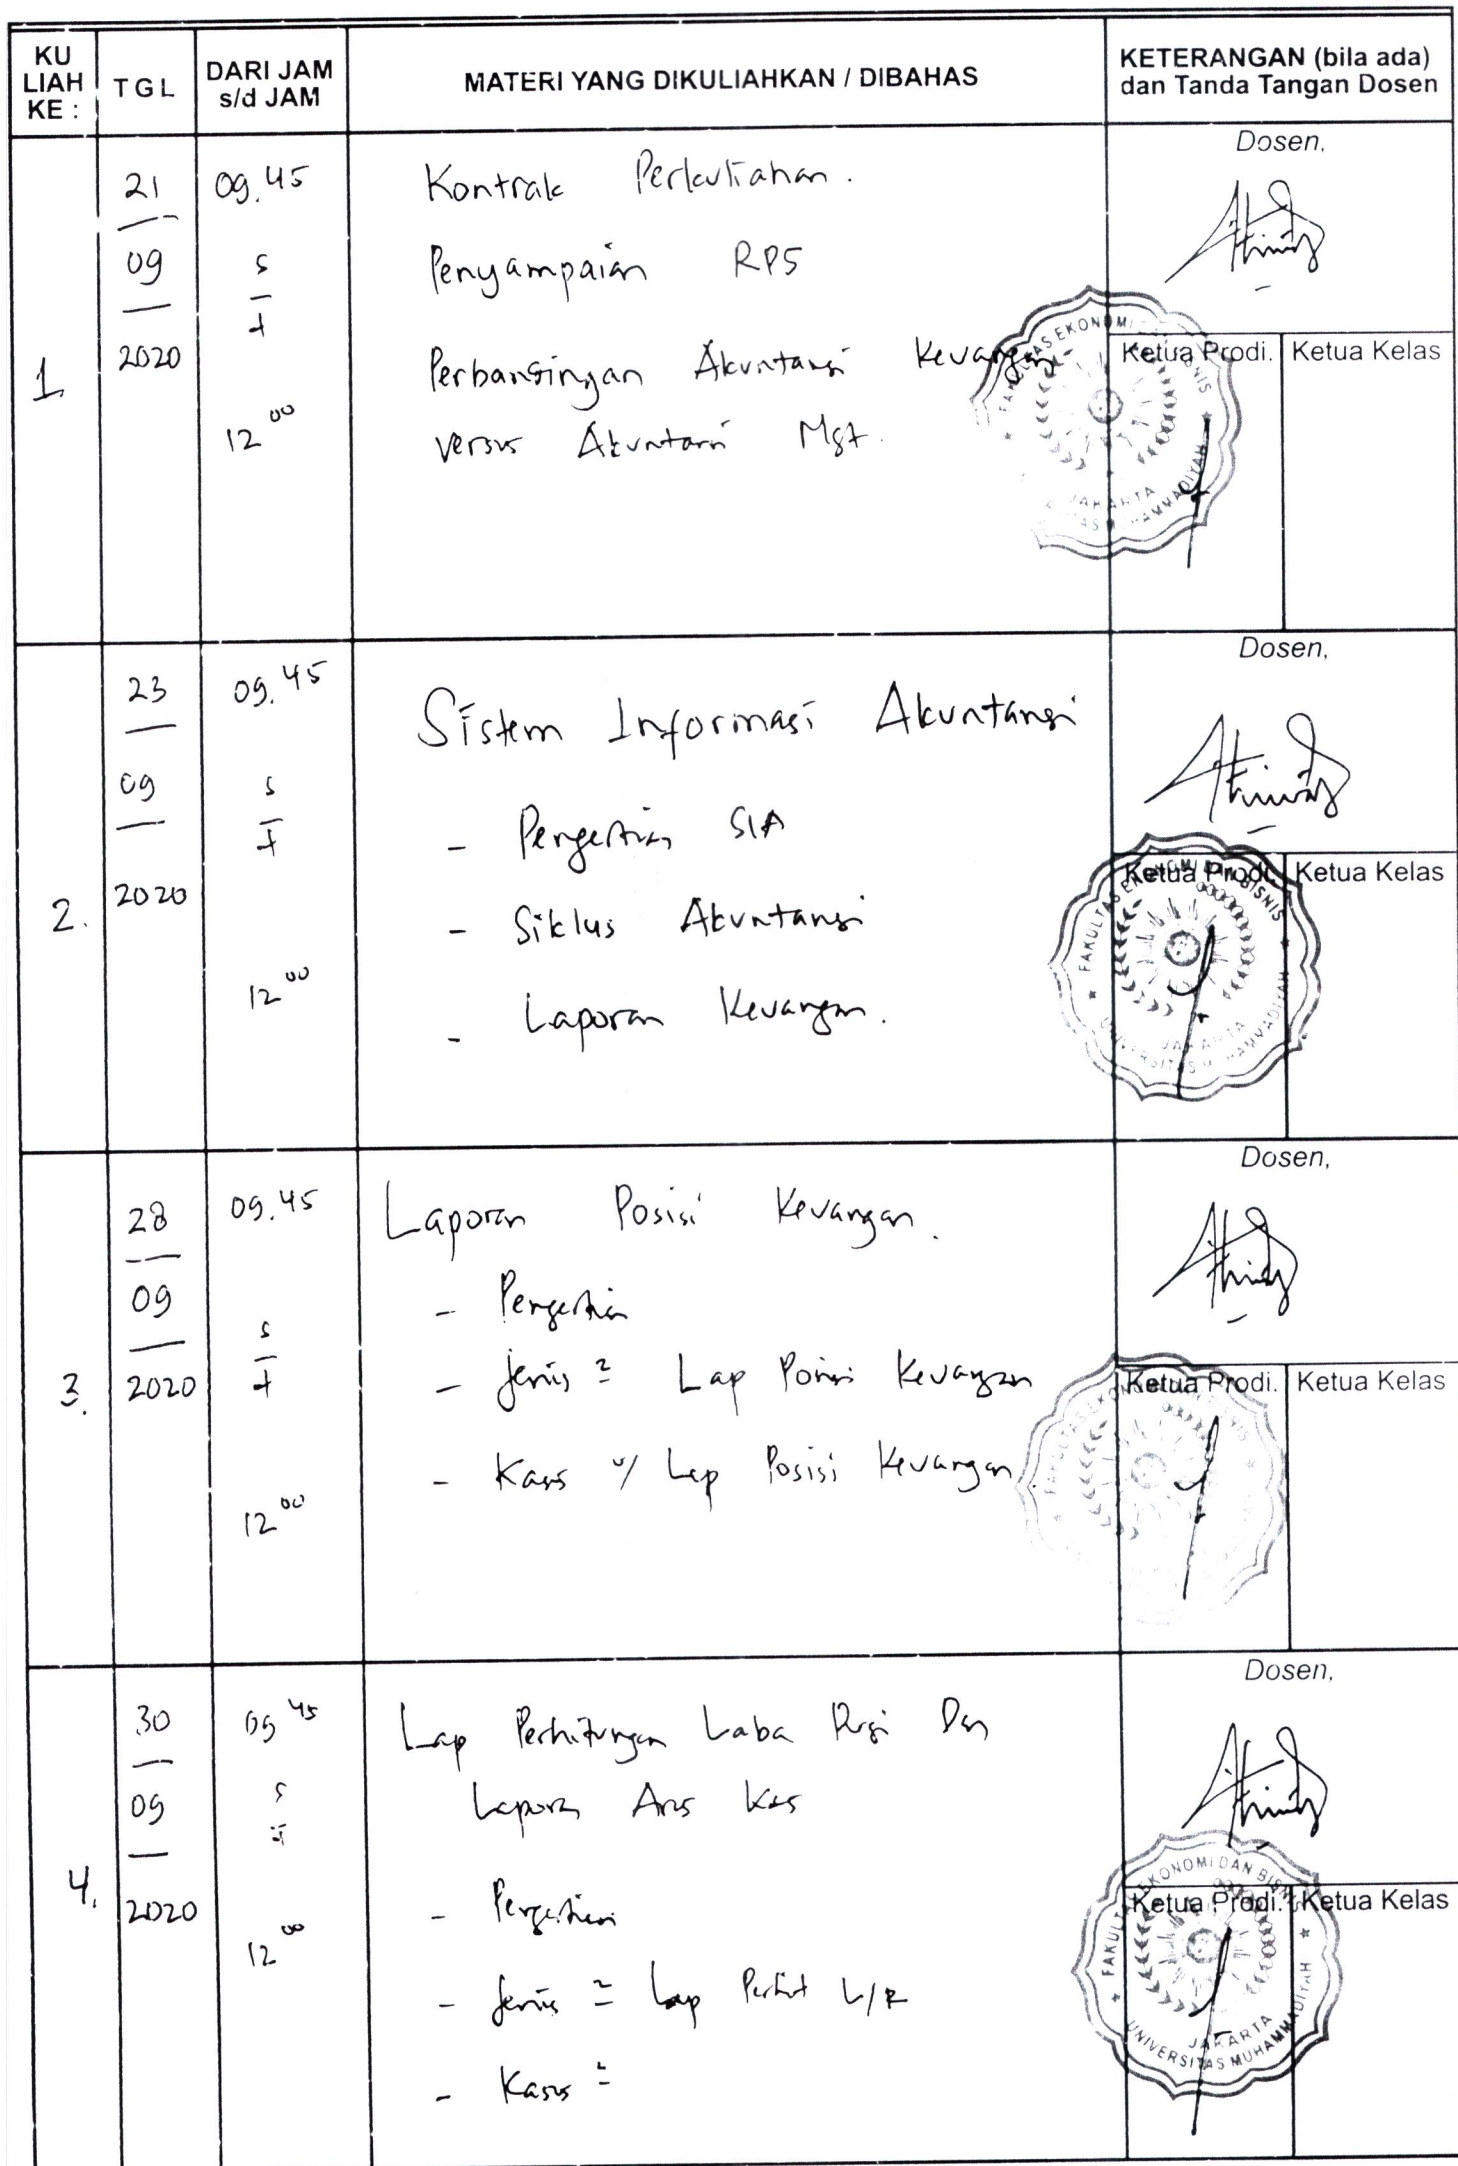 KU LIAH KE :
TGL
DARI JAM s/d JAM
MATERI YANG DIKULIAHKAN / DIBAHAS
KETERANGAN (bila ada) dan Tanda Tangan Dosen
1
21
09
2020
09.45
s
d
12 00
Kontrak Perkuliahan.
Penyampaian RPS
Perbandingan Akuntansi Keuangan
versus Akuntansi Mgt.
Dosen,
Ketua Prodi.
Ketua Kelas
FAKULTAS EKONOMI DAN BISNIS
UNIVERSITAS MUHAMMADIYAH
JAKARTA
2.
23
09
2020
09.45
s
d
12 00
Sistem Informasi Akuntansi
- Pengertian SIA
- Siklus Akuntansi
- Laporan Keuangan.
Dosen,
Ketua Prodi.
Ketua Kelas
FAKULTAS EKONOMI DAN BISNIS
UNIVERSITAS MUHAMMADIYAH
JAKARTA
3.
28
09
2020
09.45
s
d
12 00
Laporan Posisi Keuangan.
- Pengertian
- Jenis 2 Lap Posisi Keuangan
- Kasus u/ Lap Posisi Keuangan
Dosen,
Ketua Prodi.
Ketua Kelas
4.
30
09
2020
09 45
s
d
12 00
Lap Perhitungan Laba Rugi Dan
Laporan Arus Kas
- Pengertian
- Jenis 2 Lap Perhit L/R
- Kasus 2
Dosen,
Ketua Prodi.
Ketua Kelas
FAKULTAS EKONOMI DAN BISNIS
UNIVERSITAS MUHAMMADIYAH
JAKARTA